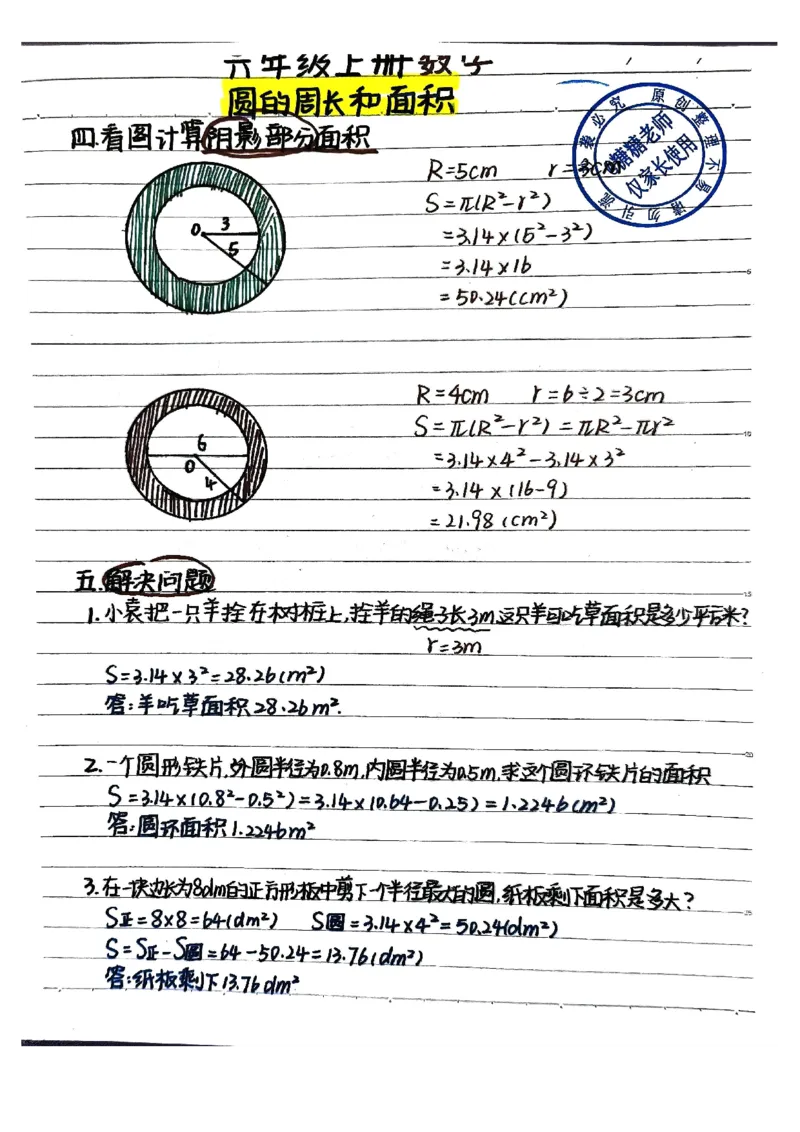 六年级上册数学
圆的周长和面积
四.看图计算阴影部分面积
R=5cm r=3cm
S=π(R²-r²)
=3.14×(5²-3²)
=3.14×16
=50.24(cm²)
O 3
5
R=4cm r=6÷2=3cm
S=π(R²-r²)=πR²-πr²
=3.14×4²-3.14×3²
=3.14×(16-9)
=21.98(cm²)
6
O
4
五.解决问题
1.小袁把一只羊拴在树桩上,拴羊的绳子长3m.这只羊可吃草面积是多少平方米?
r=3m
S=3.14×3²=28.26(m²)
答:羊吃草面积28.26m².
2.一个圆形铁片,外圆半径为0.8m,内圆半径为0.5m,求这个圆环铁片的面积
S=3.14×(0.8²-0.5²)=3.14×(0.64-0.25)=1.2246(m²)
答:圆环面积1.2246m²
3.在一块边长为8dm的正方形板中剪下一个半径最大的圆,纸板剩下面积是多大?
S正=8×8=64(dm²) S圆=3.14×4²=50.24(dm²)
S=S正-S圆=64-50.24=13.76(dm²)
答:纸板剩下13.76dm²
原创整理不易请勿引流 袭必究
糖糖老师
仅家长使用
5
10
15
20
25